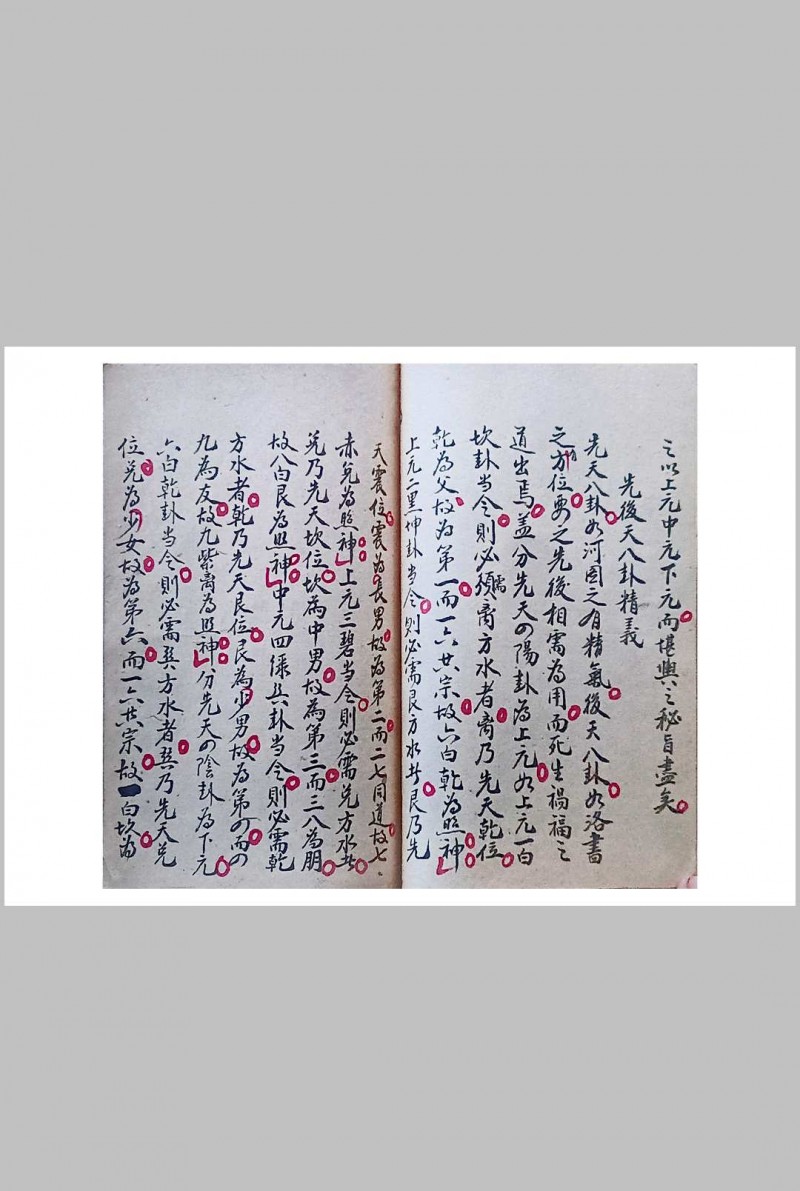 之以上元中元下元而堪輿之秘旨盡矣
先後天八卦精義
先天八卦如河图之有精氣後天八卦如洛書
之方位要之先後相需為用而死生禍福之
道出焉盖分先天の陽卦為上元如上元一白
坎卦当令則必須需离方水者离乃先天乾位
乾為父故為第一而一六共宗故六白乾為照神
上元二黑坤卦当令則必需艮方水者艮乃先
天震位震為長男故為第二而二七同道故七
赤兌為照神上元三碧当令則必需兌方水者
兌乃先天坎位坎為中男故為第三而三八為朋
故八白艮為照神中元四绿巽卦当令則必需乾
方水者乾乃先天艮位艮為少男故為第の而の
九為友故九紫离為照神分先天の陰卦為下元
六白乾卦当令則必需巽方水者巽乃先天兌
位兌為少女故為第六而一六共宗故一白坎為